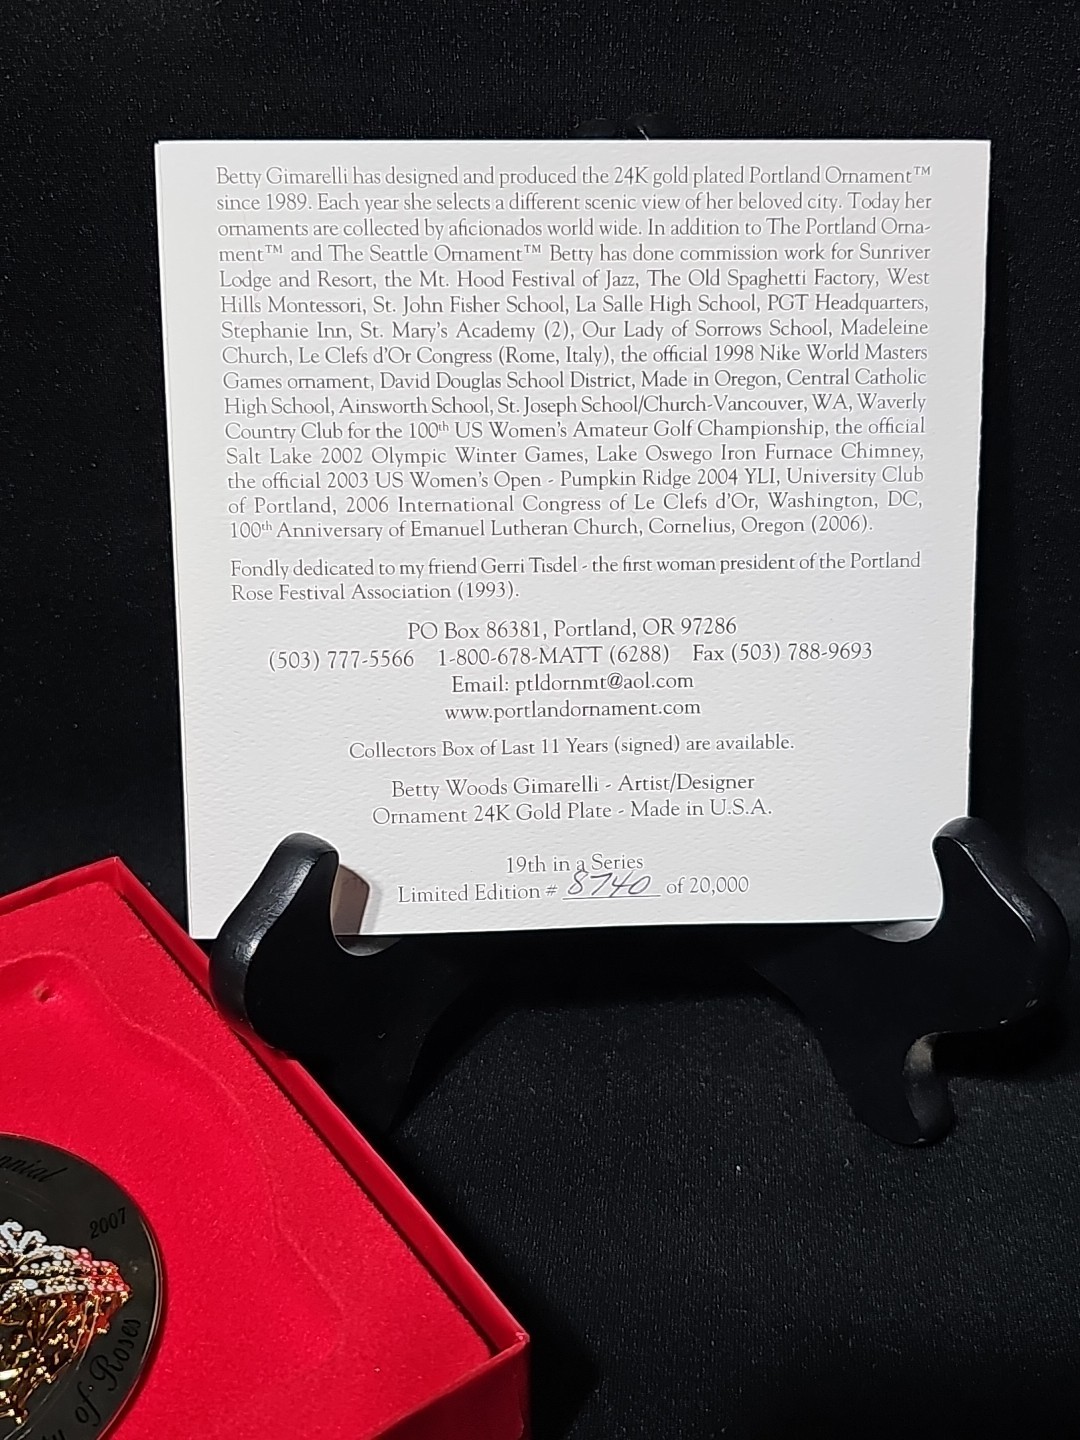 Betty Gimarelli has designed and produced the 24K gold plated Portland Ornament™
since 1989. Each year she selects a different scenic view of her beloved city. Today her
ornaments are collected by aficionados world wide. In addition to The Portland Orna-
ment™ and The Seattle Ornament™ Betty has done commission work for Sunriver
Lodge and Resort, the Mt. Hood Festival of Jazz, The Old Spaghetti Factory, West
Hills Montessori, St. John Fisher School, La Salle High School, PGT Headquarters,
Stephanie Inn, St. Mary's Academy (2), Our Lady of Sorrows School, Madeleine
Church, Le Clefs d'Or Congress (Rome, Italy), the official 1998 Nike World Masters
Games ornament, David Douglas School District, Made in Oregon, Central Catholic
High School, Ainsworth School, St. Joseph School/Church-Vancouver, WA, Waverly
Country Club for the 100th US Women's Amateur Golf Championship, the official
Salt Lake 2002 Olympic Winter Games, Lake Oswego Iron Furnace Chimney,
the official 2003 US Women's Open - Pumpkin Ridge 2004 YLI, University Club
of Portland, 2006 International Congress of Le Clefs d'Or, Washington, DC,
100th Anniversary of Emanuel Lutheran Church, Cornelius, Oregon (2006).
Fondly dedicated to my friend Gerri Tisdel - the first woman president of the Portland
Rose Festival Association (1993).
PO Box 86381, Portland, OR 97286
(503) 777-5566 1-800-678-MATT (6288) Fax (503) 788-9693
Email: ptldornmt@aol.com
www.portlandornament.com
Collectors Box of Last 11 Years (signed) are available.
Betty Woods Gimarelli - Artist/Designer
Ornament 24K Gold Plate - Made in U.S.A.
19th in a Series
Limited Edition # 8740 of 20,000
2007
of Roses